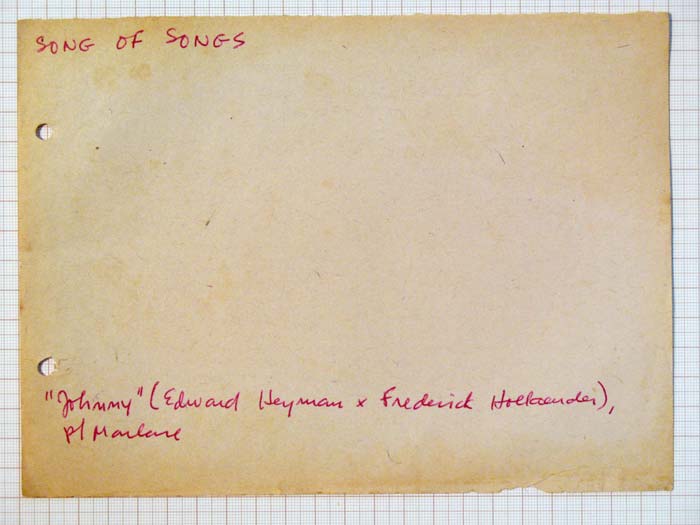 SONG OF SONGS
"Johnny" (Edward Heyman x Frederick Hollaender),
p/ Marlene